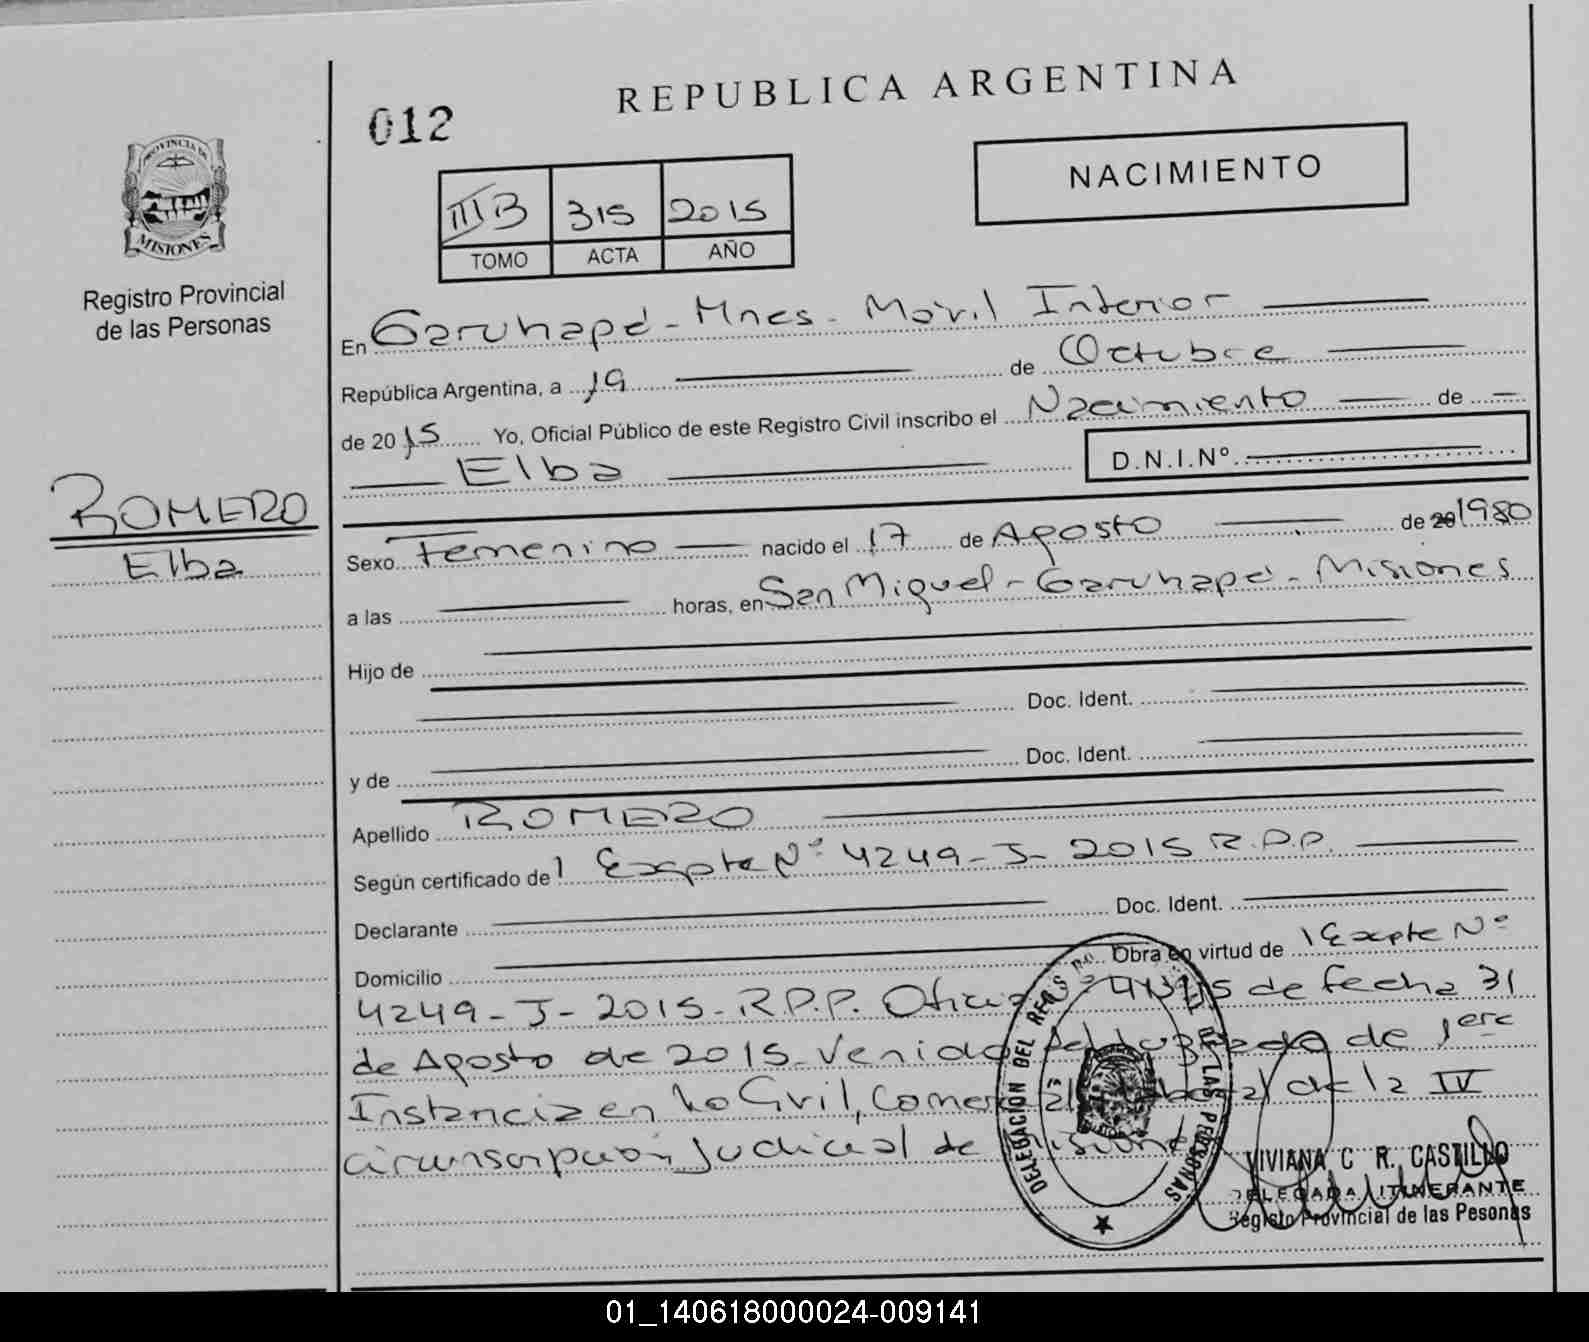 REPUBLICA ARGENTINA
012
NACIMIENTO
PROVINCIA DE
MISIONES
Registro Provincial
de las Personas
III B 315 2015
TOMO ACTA AÑO
En Garuhapé - Mnes - Móvil Interior
República Argentina, a 19 de Octubre
de 2015 Yo, Oficial Público de este Registro Civil inscribo el Nacimiento de
Elba D.N.I.Nº
ROMERO
Elba
Sexo Femenino nacido el 17 de Agosto de 20 1980
a las horas, en San Miguel - Garuhapé - Misiones
Hijo de
Doc. Ident.
y de Doc. Ident.
Apellido ROMERO
Según certificado de l Expte Nº 4249 - J - 2015 R.P.P.
Declarante Doc. Ident.
Domicilio Obra en virtud de l Expte Nº
4249 - J - 2015 - R.P.P. Oficio de fecha 31
de Agosto de 2015 - Venido del Juzgado de 1era
Instancia en lo Civil, Comercial y Laboral de la IV
circunscripción Judicial de Misiones
DELEGACION DEL REG. DE LAS PERSONAS
VIVIANA C R. CASTILLO
DELEGADA ITINERANTE
Registo Provincial de las Pesonas
01_140618000024-009141